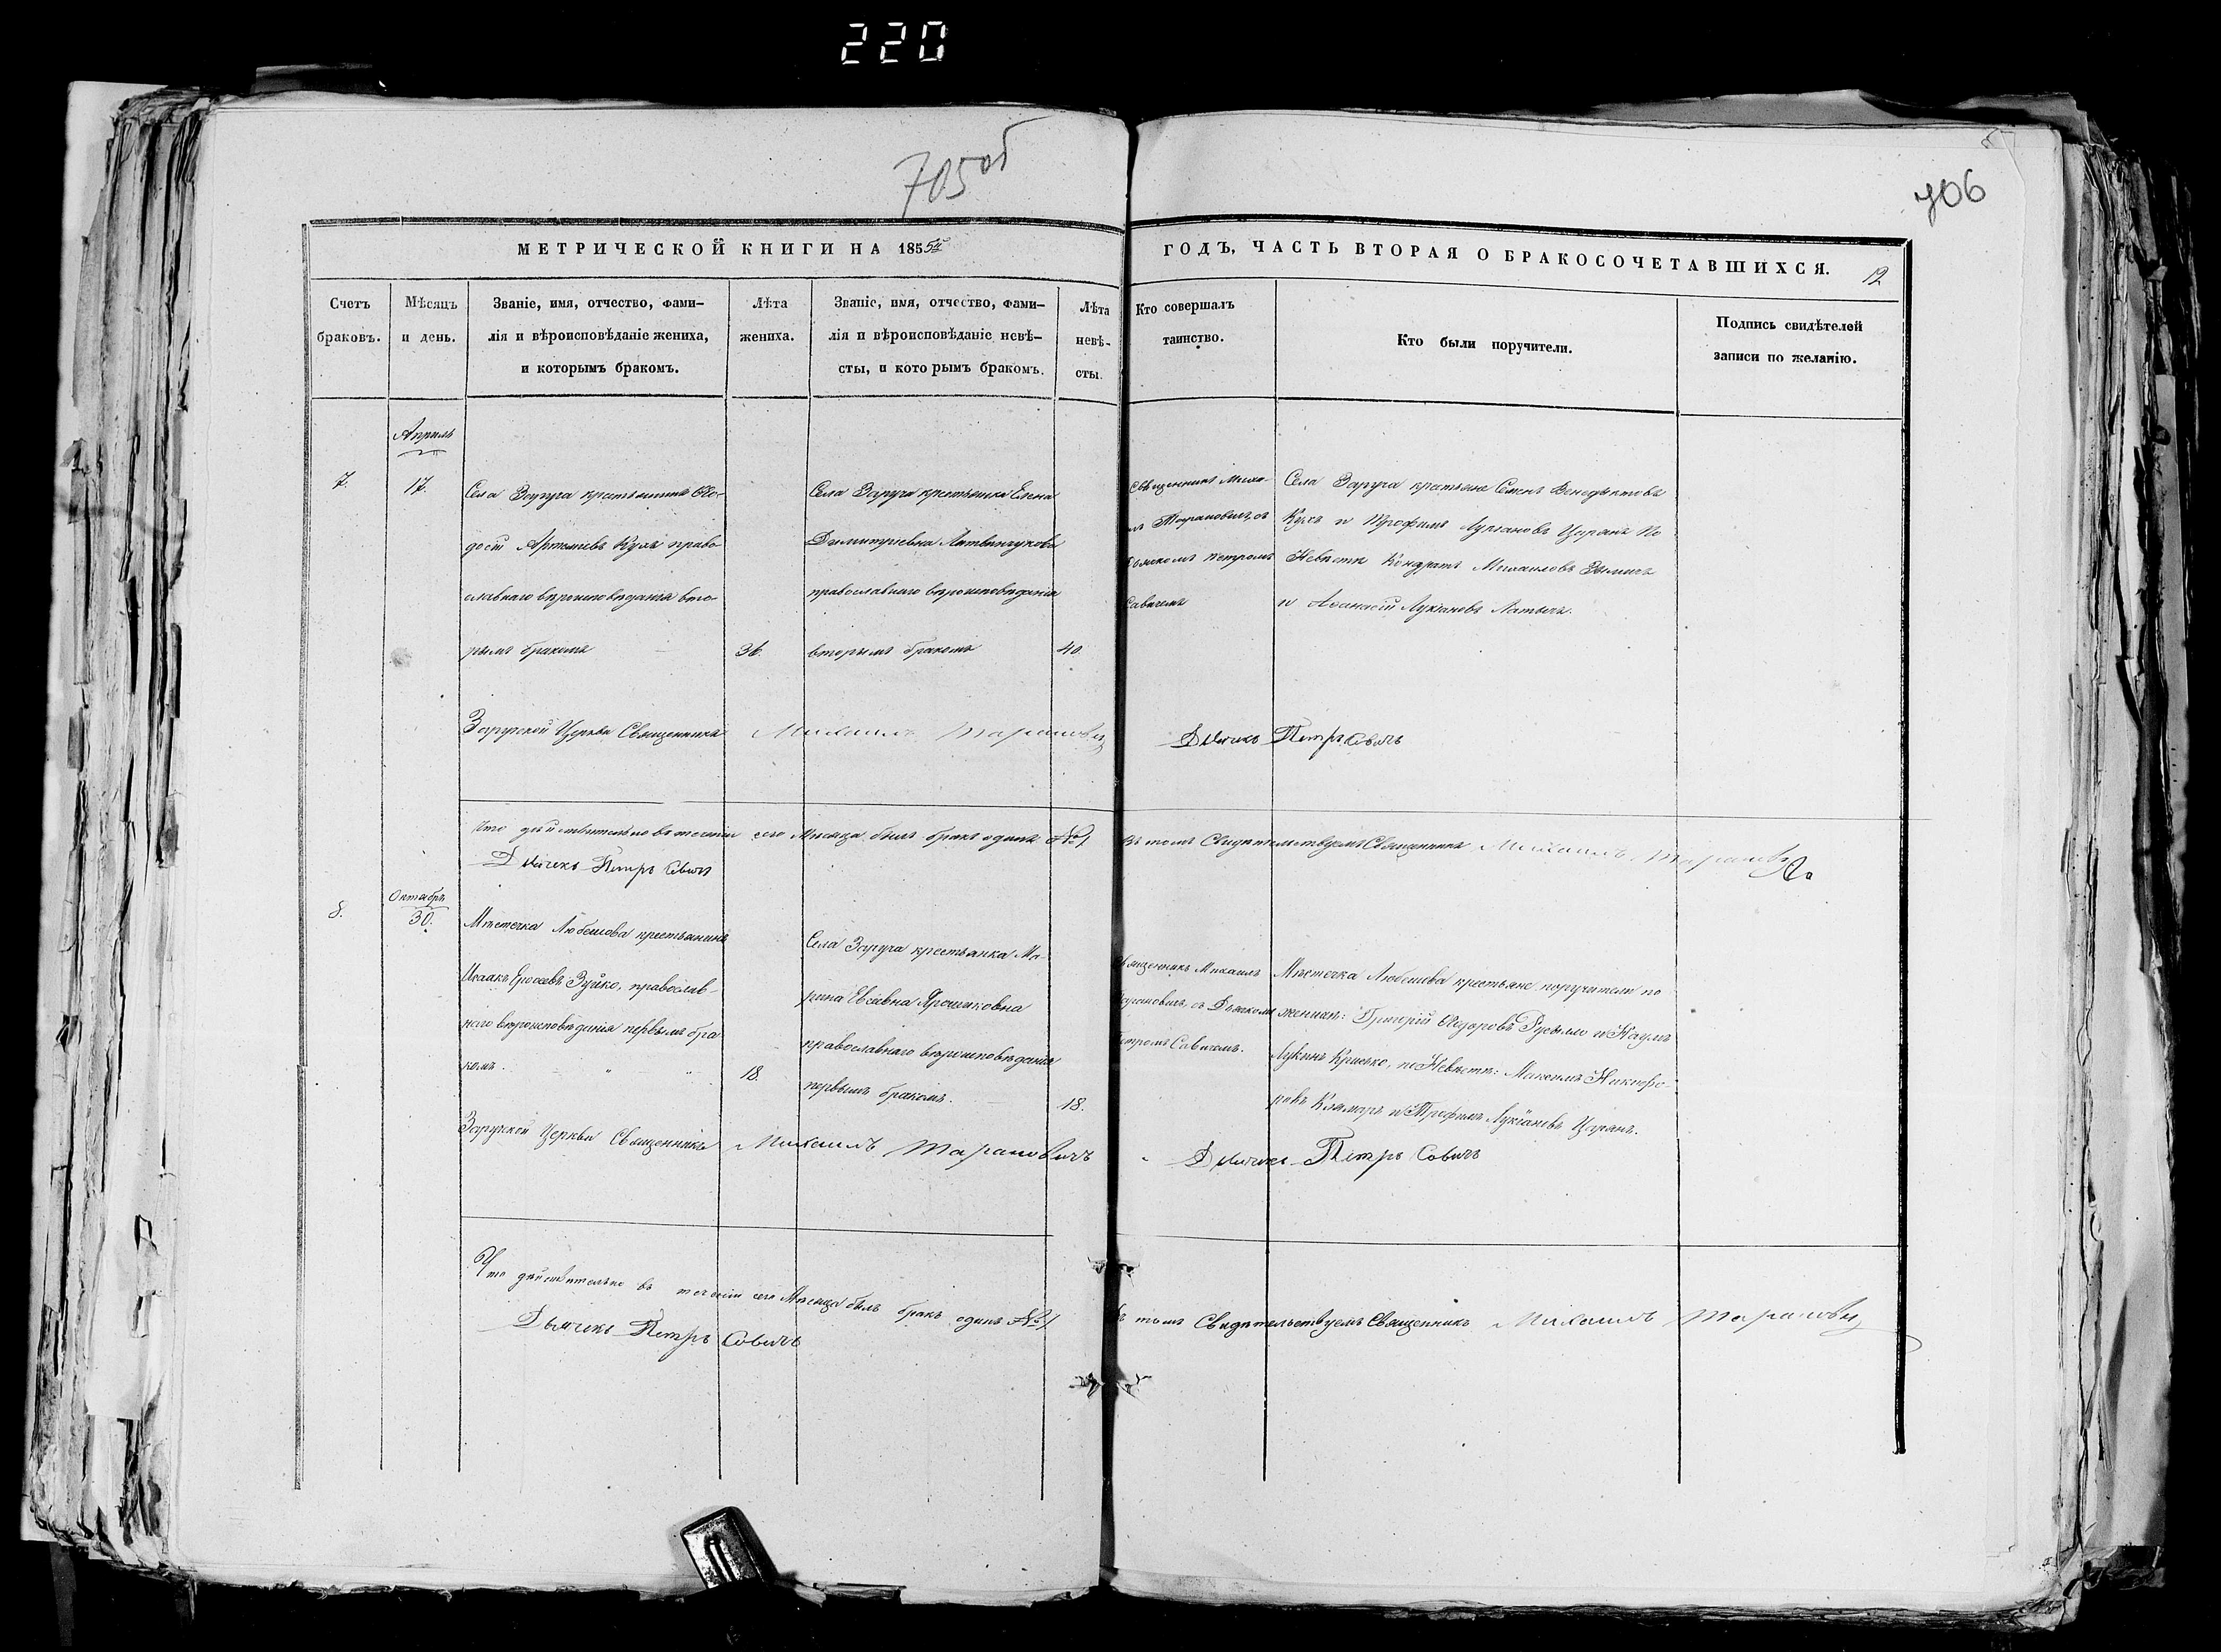 220
705 об
706
МЕТРИЧЕСКОЙ КНИГИ НА 1855й
ГОДЪ, ЧАСТЬ ВТОРАЯ О БРАКОСОЧЕТАВШИХСЯ.
12
Счетъ
браковъ.
Мѣсяцъ
и день.
Званіе, имя, отчество, фами-
лія и вѣроисповѣданіе жениха,
и которымъ бракомъ.
Лѣта
жениха.
Званіе, имя, отчество, фами-
лія и вѣроисповѣданіе невѣ-
сты, и кото рымъ бракомъ.
Лѣта
невѣ-
сты.
Кто совершалъ
таинство.
Кто были поручители.
Подпись свидѣтелей
записи по желанію.
Априль
7.
17.
Села Заруча крестьянинъ Ѳео-
досій Артемиевъ Кухъ право-
славнаго вѣроисповѣданія вто-
рымъ бракомъ
36.
Села Заруча крестьянка Елена
Димитріевна Литвинчукова
православнаго вѣроисповѣданія
вторымъ бракомъ
40.
Священникъ Миха-
илъ Тарановичъ, съ
Дьячкомъ Петромъ
Савичемъ
Села Заруча крестьяне Семенъ Венедыктовъ
Кухъ и Трофимъ Лукіановъ Царанъ По
Невѣстѣ Кондратъ Михаиловъ
и Аѳанасій Лукіановъ
Заруцкой Церкви Священникъ Михаилъ Тарановичъ
Дьячекъ Петръ Савичъ
Что дѣйствительно въ теченіи сего Мѣсяца былъ бракъ одинъ №1
Въ томъ Свидѣтельствуемъ Священникъ Михаилъ Тарановичъ
Дьячекъ Петръ Савичъ
8.
Октябрь
30.
Мѣстечка Любешова крестьянинъ
Исаакъ Ероѳеевъ Зуйко, православ-
наго вѣроисповѣданія первымъ бра-
комъ.
18.
Села Заруча крестьянка Ма-
рина Евсѣвна Ярошаковна
православнаго вѣроисповѣданія
первымъ бракомъ.
18.
Священникъ Михаилъ
Тарановичъ, съ Дьячкомъ
Петромъ Савичемъ.
Мѣстечка Любешова крестьяне поручители по
женихѣ: Григорій Ѳедоровъ и Наумъ
Лукинъ, по Невѣстѣ: Максимъ Никифо-
ровъ и Трофимъ Лукіановъ Царанъ.
Заруцкой Церкви Священникъ Михаилъ Тарановичъ
Дьячекъ Петръ Савичъ
Что дѣйствительно въ теченіи сего Мѣсяца былъ бракъ одинъ №1
Въ томъ Свидѣтельствуемъ Священникъ Михаилъ Тарановичъ
Дьячекъ Петръ Савичъ